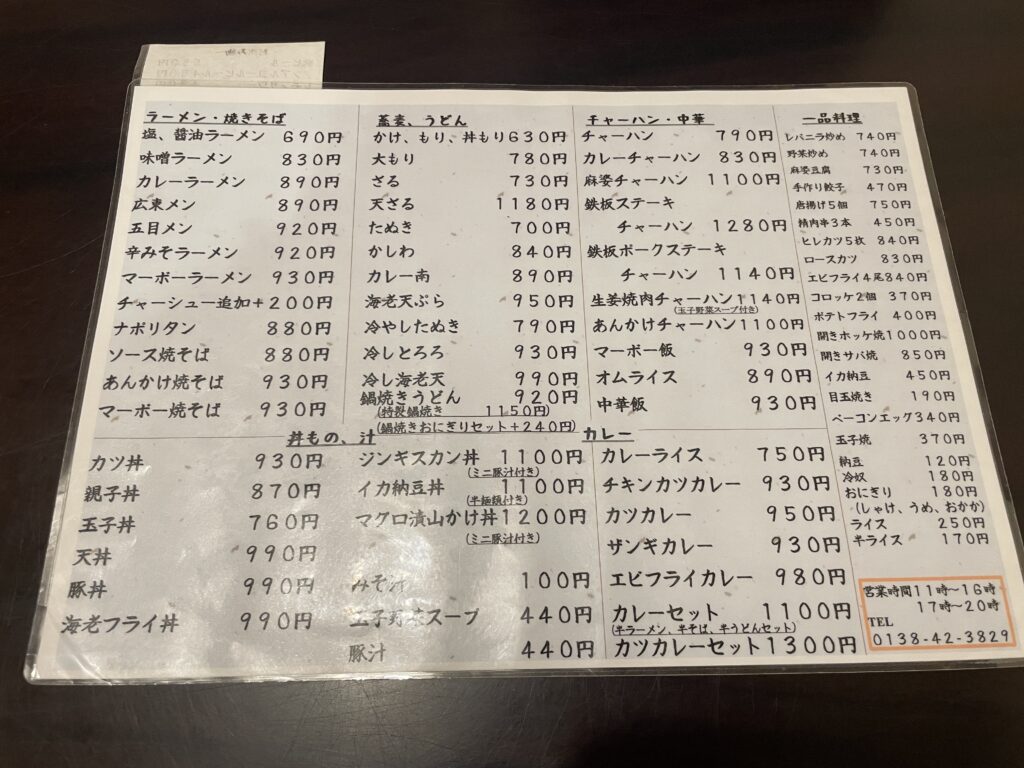 ラーメン・焼きそば
塩、醤油ラーメン 690円
味噌ラーメン 830円
カレーラーメン 890円
広東メン 890円
五目メン 920円
辛みそラーメン 920円
マーボーラーメン 930円
チャーシュー追加+200円
ナポリタン 880円
ソース焼そば 880円
あんかけ焼そば 930円
マーボー焼そば 930円
蕎麦、うどん
かけ、もり、丼もり630円
大もり 780円
ざる 730円
天ざる 1180円
たぬき 700円
かしわ 840円
カレー南 890円
海老天ぷら 950円
冷やしたぬき 790円
冷しとろろ 930円
冷し海老天 990円
鍋焼きうどん 920円
(特製鍋焼き 1150円)
(鍋焼きおにぎりセット+240円)
チャーハン・中華
チャーハン 790円
カレーチャーハン 830円
麻婆チャーハン 1100円
鉄板ステーキ
チャーハン 1280円
鉄板ポークステーキ
チャーハン 1140円
生姜焼肉チャーハン1140円
(玉子野菜スープ付き)
あんかけチャーハン1100円
マーボー飯 930円
オムライス 890円
中華飯 930円
一品料理
レバニラ炒め 740円
野菜炒め 740円
麻婆豆腐 730円
手作り餃子 470円
唐揚げ5個 750円
精肉串3本 450円
ヒレカツ5枚 840円
ロースカツ 830円
エビフライ4尾840円
コロッケ2個 370円
ポテトフライ 400円
開きホッケ焼1000円
開きサバ焼 850円
イカ納豆 450円
目玉焼き 190円
ベーコンエッグ340円
玉子焼 370円
納豆 120円
冷奴 180円
おにぎり 180円
(しゃけ、うめ、おかか)
ライス 250円
半ライス 170円
丼もの、汁
カツ丼 930円
親子丼 870円
玉子丼 760円
天丼 990円
豚丼 990円
海老フライ丼 990円
ジンギスカン丼 1100円
(ミニ豚汁付き)
イカ納豆丼 1100円
(半麺類付き)
マグロ漬山かけ丼1200円
(ミニ豚汁付き)
みそ汁 100円
玉子野菜スープ 440円
豚汁 440円
カレー
カレーライス 750円
チキンカツカレー 930円
カツカレー 950円
ザンギカレー 930円
エビフライカレー 980円
カレーセット 1100円
(半ラーメン、半そば、半うどんセット)
カツカレーセット1300円
営業時間11時~16時
17時~20時
TEL
0138-42-3829